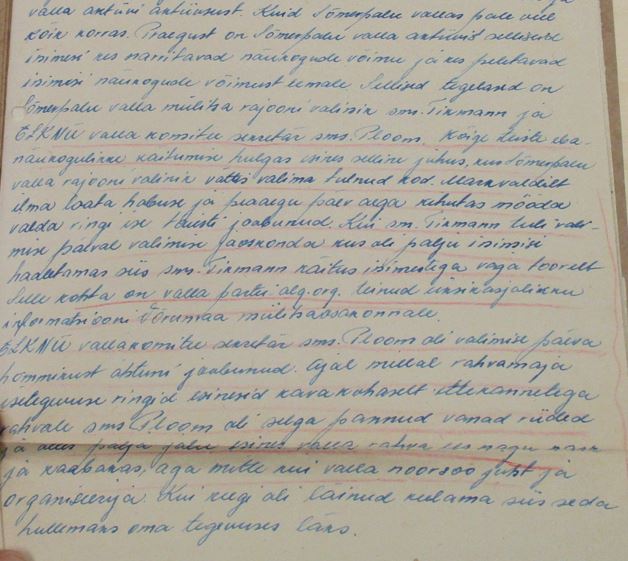 valla aktiivi aktiivsust. Kuid Sõmerpalu vallas pole veel
kõik korras. Praegust on Sõmerpalu valla aktiivis selliseid
inimesi kes narritavad nõukogude võimu ja kes peletavad
inimesi nõukogude võimust eemale. Sellised tegelased on
Sõmerpalu valla miilitsa rajooni volinik sms. Tikmann ja
ELKNÜ valla komitee sekretär sms. Ploom. Kõige teiste eba-
nõukogulikke käitumise hulgas esines selline juhus, kus Sõmerpalu
valla rajooni volinik võttis valima tulnud kod.
ilma loata hobuse ja peaaegu päev aega kihutas mööda
valda ringi ise täiesti joobunud. Kui sm. Tikmann tuli vali-
mise päeval valimise jaoskonda kus oli palju inimesi
hääletamas siis sms. Tikmann käitus inimestega väga toorelt
Selle kohta on valla partei alg.org. teinud üksikasjalikku
informatsiooni Võrumaa miilitsaosakonnale.
ELKNÜ vallakomitee sekretär sms. Ploom oli valimise päeva
hommikust õhtuni joobunud. Ajal millal rahvamaja
isetegevuse ringid esinesid kavakohaselt ettekannetega
rahvale sms. Ploom oli selga pannud vanad riided
ja olles palja jalu esines valla rahva ees nagu narr
ja kaabakas, aga mitte kui valla noorsoo juht ja
organiseerija. Kui keegi oli läinud keelama siis seda
hullemaks oma tegevuses läks.